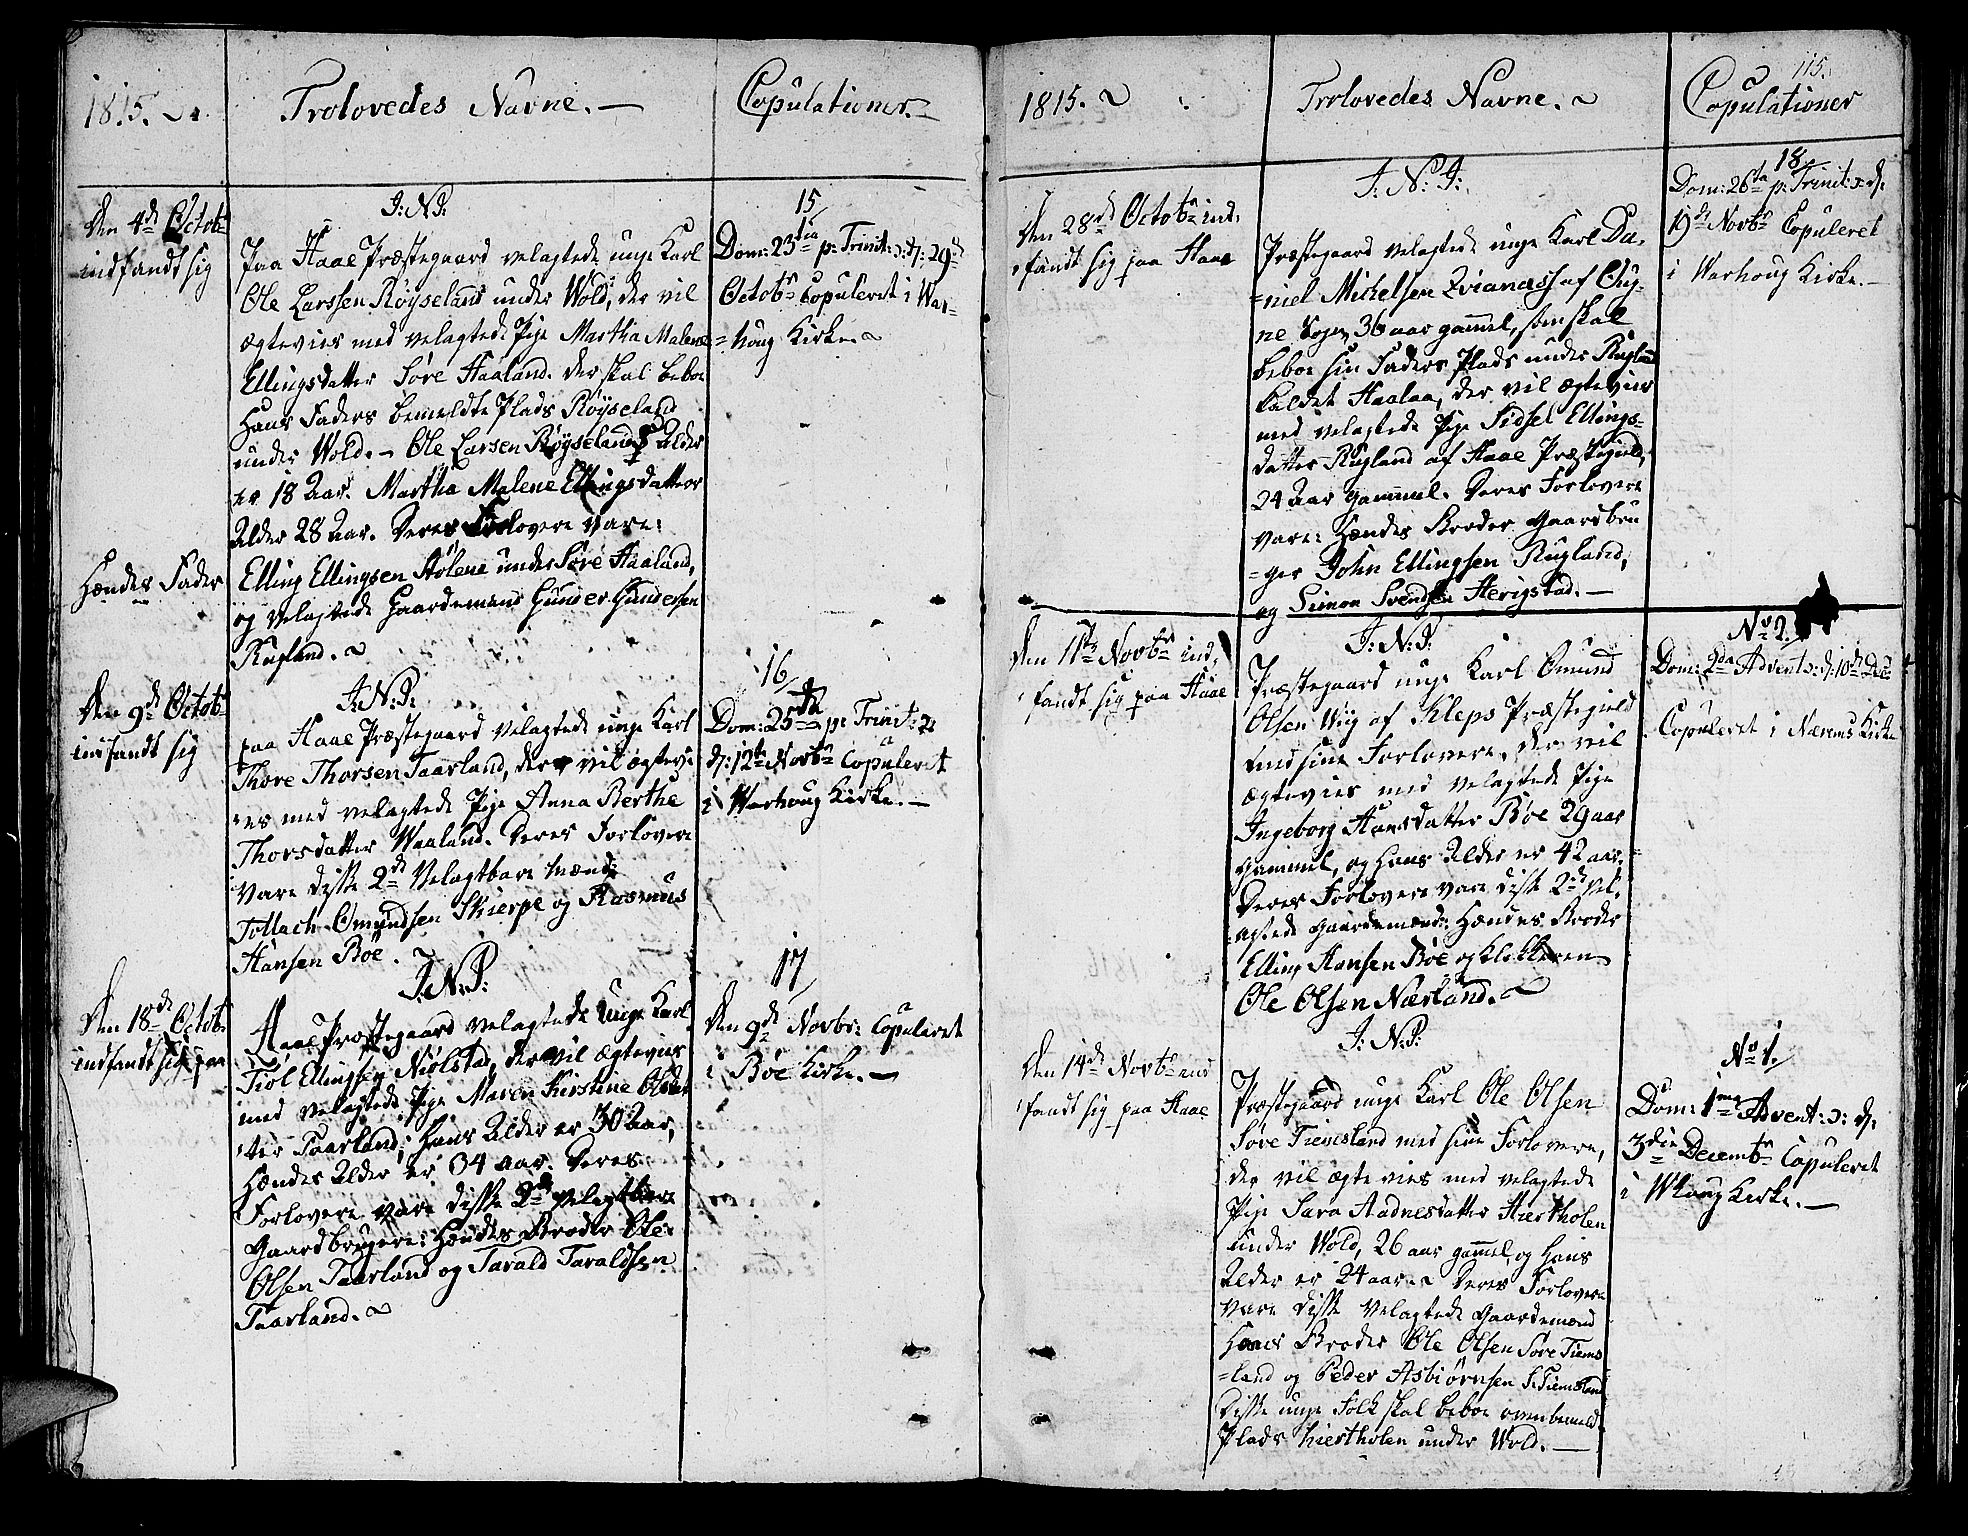 1815.
Trolovedes Navne. —
Copulationer. —
Den 4de Octobr
indfandt sig
J: N: J:
paa Haae Præstegaard velagtede unge Karl
Ole Larssen Röyseland under Wold, der vil
ægtevies med velagtede Pige Martha Malene
Ellingsdatter Söre Haaland. der skal beboe
Hans Faders bemeldte Plads Röyseland
under Wold. — Ole Larsen Röyselands Alder
er 18 Aar. Martha Malene Ellingsdatters
Alder 28 Aar. Deres Forlovere vare:
Hændes Fader
Elling Ellingsen Stölene under Söre Haaland,
og velagtede Gaardemand Gunder Gundersen
Rugland.
15
Dom: 23tia p: Trinit: ɔ: d: 29de
Octobr Copuleret i War-
=houg Kirke.
Den 9de Octobr
indfandt sig
J: N: J:
paa Haae Præstegaard velagtede unge Karl
Thore Thorsen Taarland, der vil ægtevi-
=es med velagtede Pige Anna Berthe
Thorsdatter Waaland. Deres Forlovere
vare disse 2de velagtbare Mænd:
Tollach Omundsen Skierpe og Rasmus
Hansen Böe.
16
Dom: 25ta p: Trinit: ɔ:
d: 12te Novbr Copuleret
i Warhoug Kirke. —
Den 18de Octobr
indfandt sig paa
J: N: J:
Haae Præstegaard velagtede unge Karl
Tiöl Ellingsen Niölstad, der vil ægtevies
med velagtede Pige Maren Kirstine Olsdat-
ter Taarland; Hans Alder er 30 Aar,
Hændes Alder er 34 aar. Deres
Forlovere vare disse 2de velagtbare
Gaardbrugere: Hændes Broder Ole
Olsen Taarland og Tarald Taraldsen
Taarland.
17
Den 9de Novbr: Copuleret
i Böe Kirke. —
115.
1815.
Trolovedes Navne.
Copulationer
Den 28de Octobr ind-
fandt sig paa Haae
J: N: J:
Præstegaard velagtede unge Karl Da-
=niel Michelsen af Oug-
ne Sogn, 36 aar gammel, som skal
beboe sin Faders Plads under Rugland
kaldet Haalaa, der vil ægtevies
med velagtede Pige Sidsel Ellings-
datter Rugland af Haae Præstegield,
24 Aar gammel. Deres Forlovere
vare: Hændes Broder Gaardbru
=ger John Ellingsen Rugland,
og Simon Svendsen Herigstad. —
18
Dom: 26ta p: Trinit: ɔ: d:
19de Novbr Copuleret
i Warhoug Kirke. —
Den 11te Novbr ind-
fandt sig paa Haae
J: N: J:
Præstegaard unge Karl Omund
Olsen Wiig af Kleps Præstegield
med sine Forlovere, der vil
ægtevies med velagtede Pige
Ingeborg Hansdatter Böe 29 aar
gammel, og Hans Alder er 42 aar.
Deres Forlovere vare disse 2de vel-
agtede Gaardemænd: Hændes Broder
Elling Hansen Böe og Klokkeren
Ole Olsen Nærland.
No 2.
Dom: 2da Advent ɔ: d: 10de Dec
Copuleret i Nærems Kirke
Den 14de Novbr ind
fandt sig paa Haae
J: N: J:
Præstegaard unge Karl Ole Olsen
Söre Tiemsland med sine Forlovere,
der vil ægtevies med velagtede
Pige Sara Aadnesdatter Hiertholen
under Wold, 26 aar gammel, og Hans
Alder er 24 aar. Deres Forlovere
vare disse velagtede Gaardemænd
Hans Broder Ole Olsen Söre Tiems
=land og Peder Asbiörnsen S. Tiemsland
Disse unge Folk skal beboe ovenbemeldte
Plads Hiertholen under Wold. —
No 1.
Dom: 1ma Advent: ɔ: d:
3die Decembr Copuleret
i Whoug Kirke. —